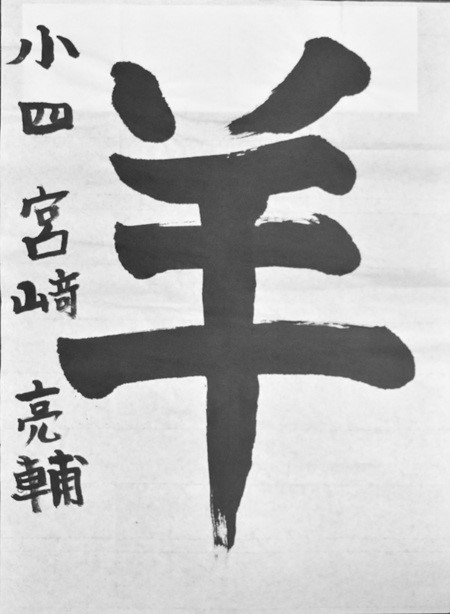 羊
小四 宮﨑 亮輔